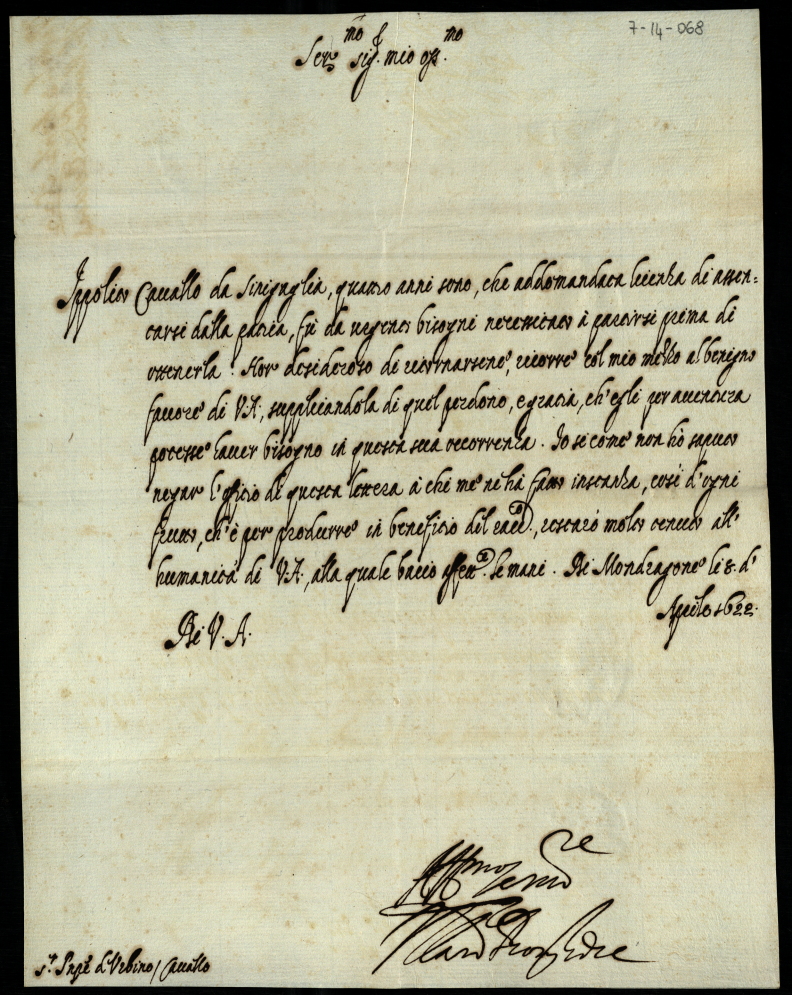 7-14-068
Ser.mo sig.r mio oss.mo
Ippolito Cavallo da Sinigaglia, quattro anni sono, che addomandata licenza di assen=
tarsi dalla patria, fù da urgenti bisogni necessitato à partirsi prima di
ottenerla. Hor desideroso di ritornarsene, ricorre col mio mezzo al benigno
favore di V.A., supplicandola di quel perdono, e gratia, ch'egli per auuentura
potesse hauer bisogno in questa sua occorrenza. Io si come non hò saputo
negar l'officio di questa lettera à chi me ne hà fatto instanza, così d'ogni
frutto, ch'è per produrre in beneficio del racc.do, restarò molto tenuto all'
humanità di V.A., alla quale bacio affett.te le mani. Di Mondragone li 8. d'
Aprile 1622.
Di V. A.
Aff.mo ser.re
Il Card.
s.r Prĩpe d'Urbino / Cavallo